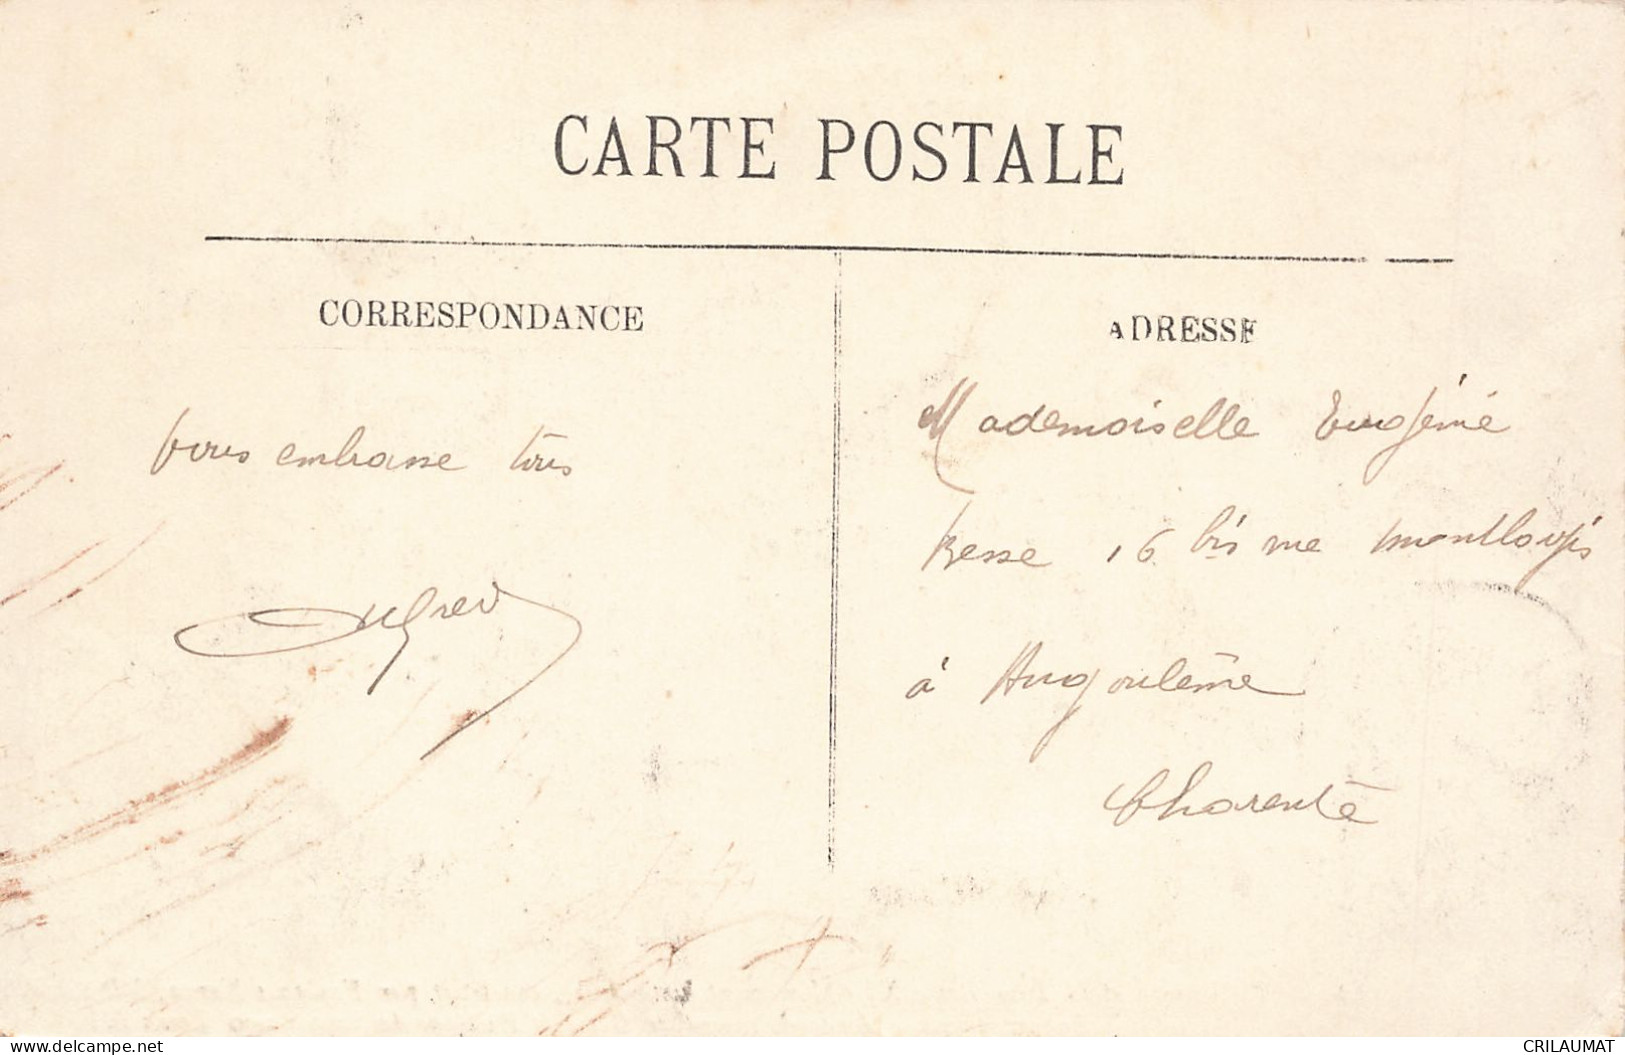 CARTE POSTALE
CORRESPONDANCE
ADRESSE
vous embrasse tous
Mademoiselle Eugénie
16 bis rue montlouis
à Angoulême
Charente
delcampe.net
CRILAUMAT